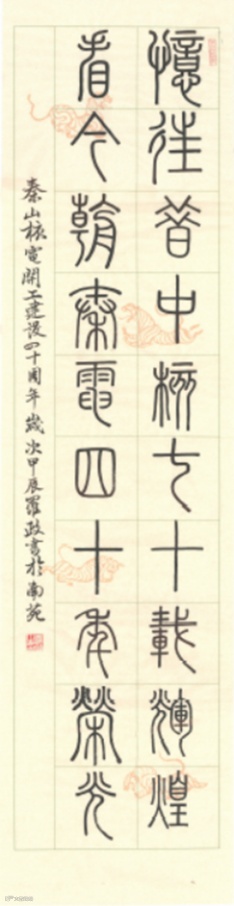 憶往昔中核七十載輝煌
看今朝秦電四十年榮光
秦山核電開工建設四十周年歲次甲辰羅政書於南苑